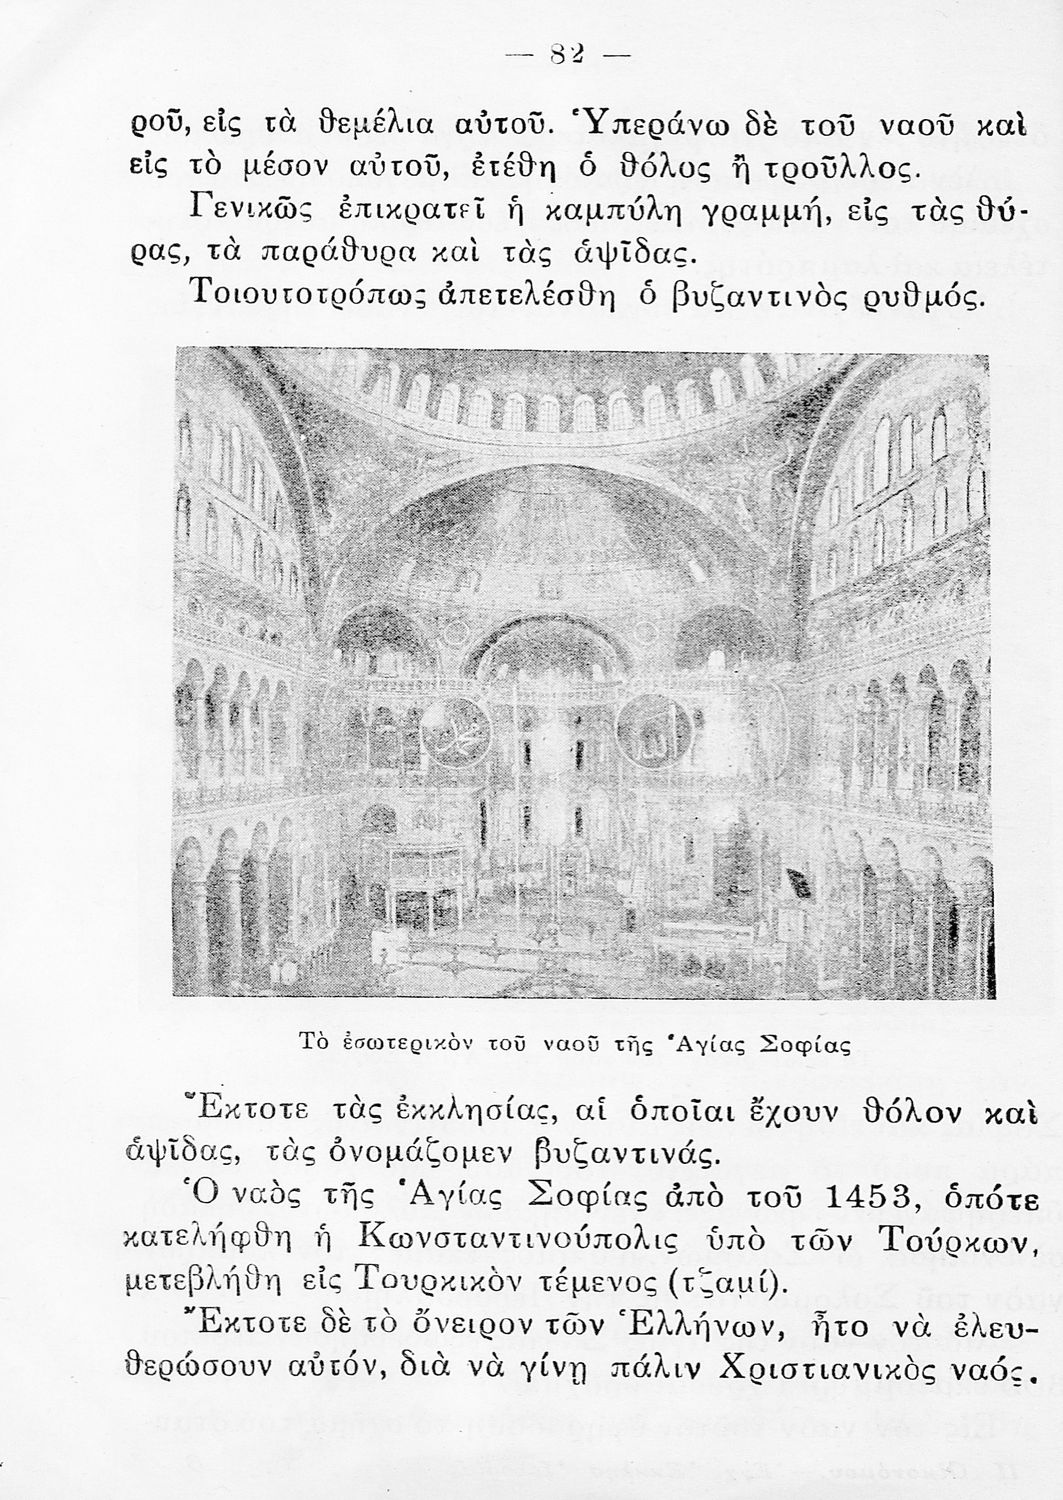 — 82 —
ροῦ, εἰς τὰ θεμέλια αὐτοῦ. Ὑπεράνω δὲ τοῦ ναοῦ καὶ
εἰς τὸ μέσον αὐτοῦ, ἐτέθη ὁ θόλος ἢ τροῦλλος.
Γενικῶς ἐπικρατεῖ ἡ καμπύλη γραμμή, εἰς τὰς θύ-
ρας, τὰ παράθυρα καὶ τὰς ἁψῖδας.
Τοιουτοτρόπως ἀπετελέσθη ὁ βυζαντινὸς ρυθμός.
Τὸ ἐσωτερικὸν τοῦ ναοῦ τῆς Ἁγίας Σοφίας
Ἔκτοτε τὰς ἐκκλησίας, αἱ ὁποῖαι ἔχουν θόλον καὶ
ἁψῖδας, τὰς ὀνομάζομεν βυζαντινάς.
Ὁ ναὸς τῆς Ἁγίας Σοφίας ἀπὸ τοῦ 1453, ὁπότε
κατελήφθη ἡ Κωνσταντινούπολις ὑπὸ τῶν Τούρκων,
μετεβλήθη εἰς Τουρκικὸν τέμενος (τζαμί).
Ἔκτοτε δὲ τὸ ὄνειρον τῶν Ἑλλήνων, ἦτο νὰ ἐλευ-
θερώσουν αὐτόν, διὰ νὰ γίνῃ πάλιν Χριστιανικὸς ναός.